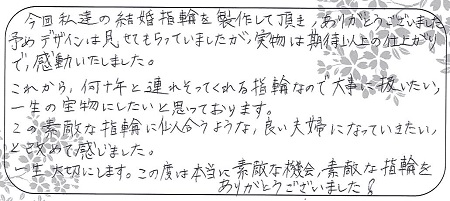 今回私達の結婚指輪を製作して頂き、ありがとうございました
予めデザインは見せてもらっていましたが、実物は期待以上の仕上がり
で、感動いたしました。
これから、何十年と連れそってくれる指輪なので大事に扱いたい、
一生の宝物にしたいと思っております。
この素敵な指輪に似合うような、良い夫婦になっていきたい、
と改めて感じました。
一生大切にします。この度は本当に素敵な機会、素敵な指輪を
ありがとうございました!